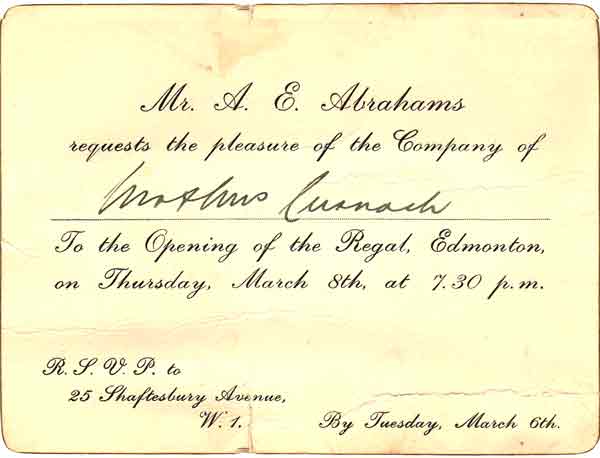 Mr. A. E. Abrahams
requests the pleasure of the Company of
Mr & Mrs
To the Opening of the Regal, Edmonton,
on Thursday, March 8th, at 7.30 p.m.
R. S. V. P. to
25 Shaftesbury Avenue,
W. 1.
By Tuesday, March 6th.